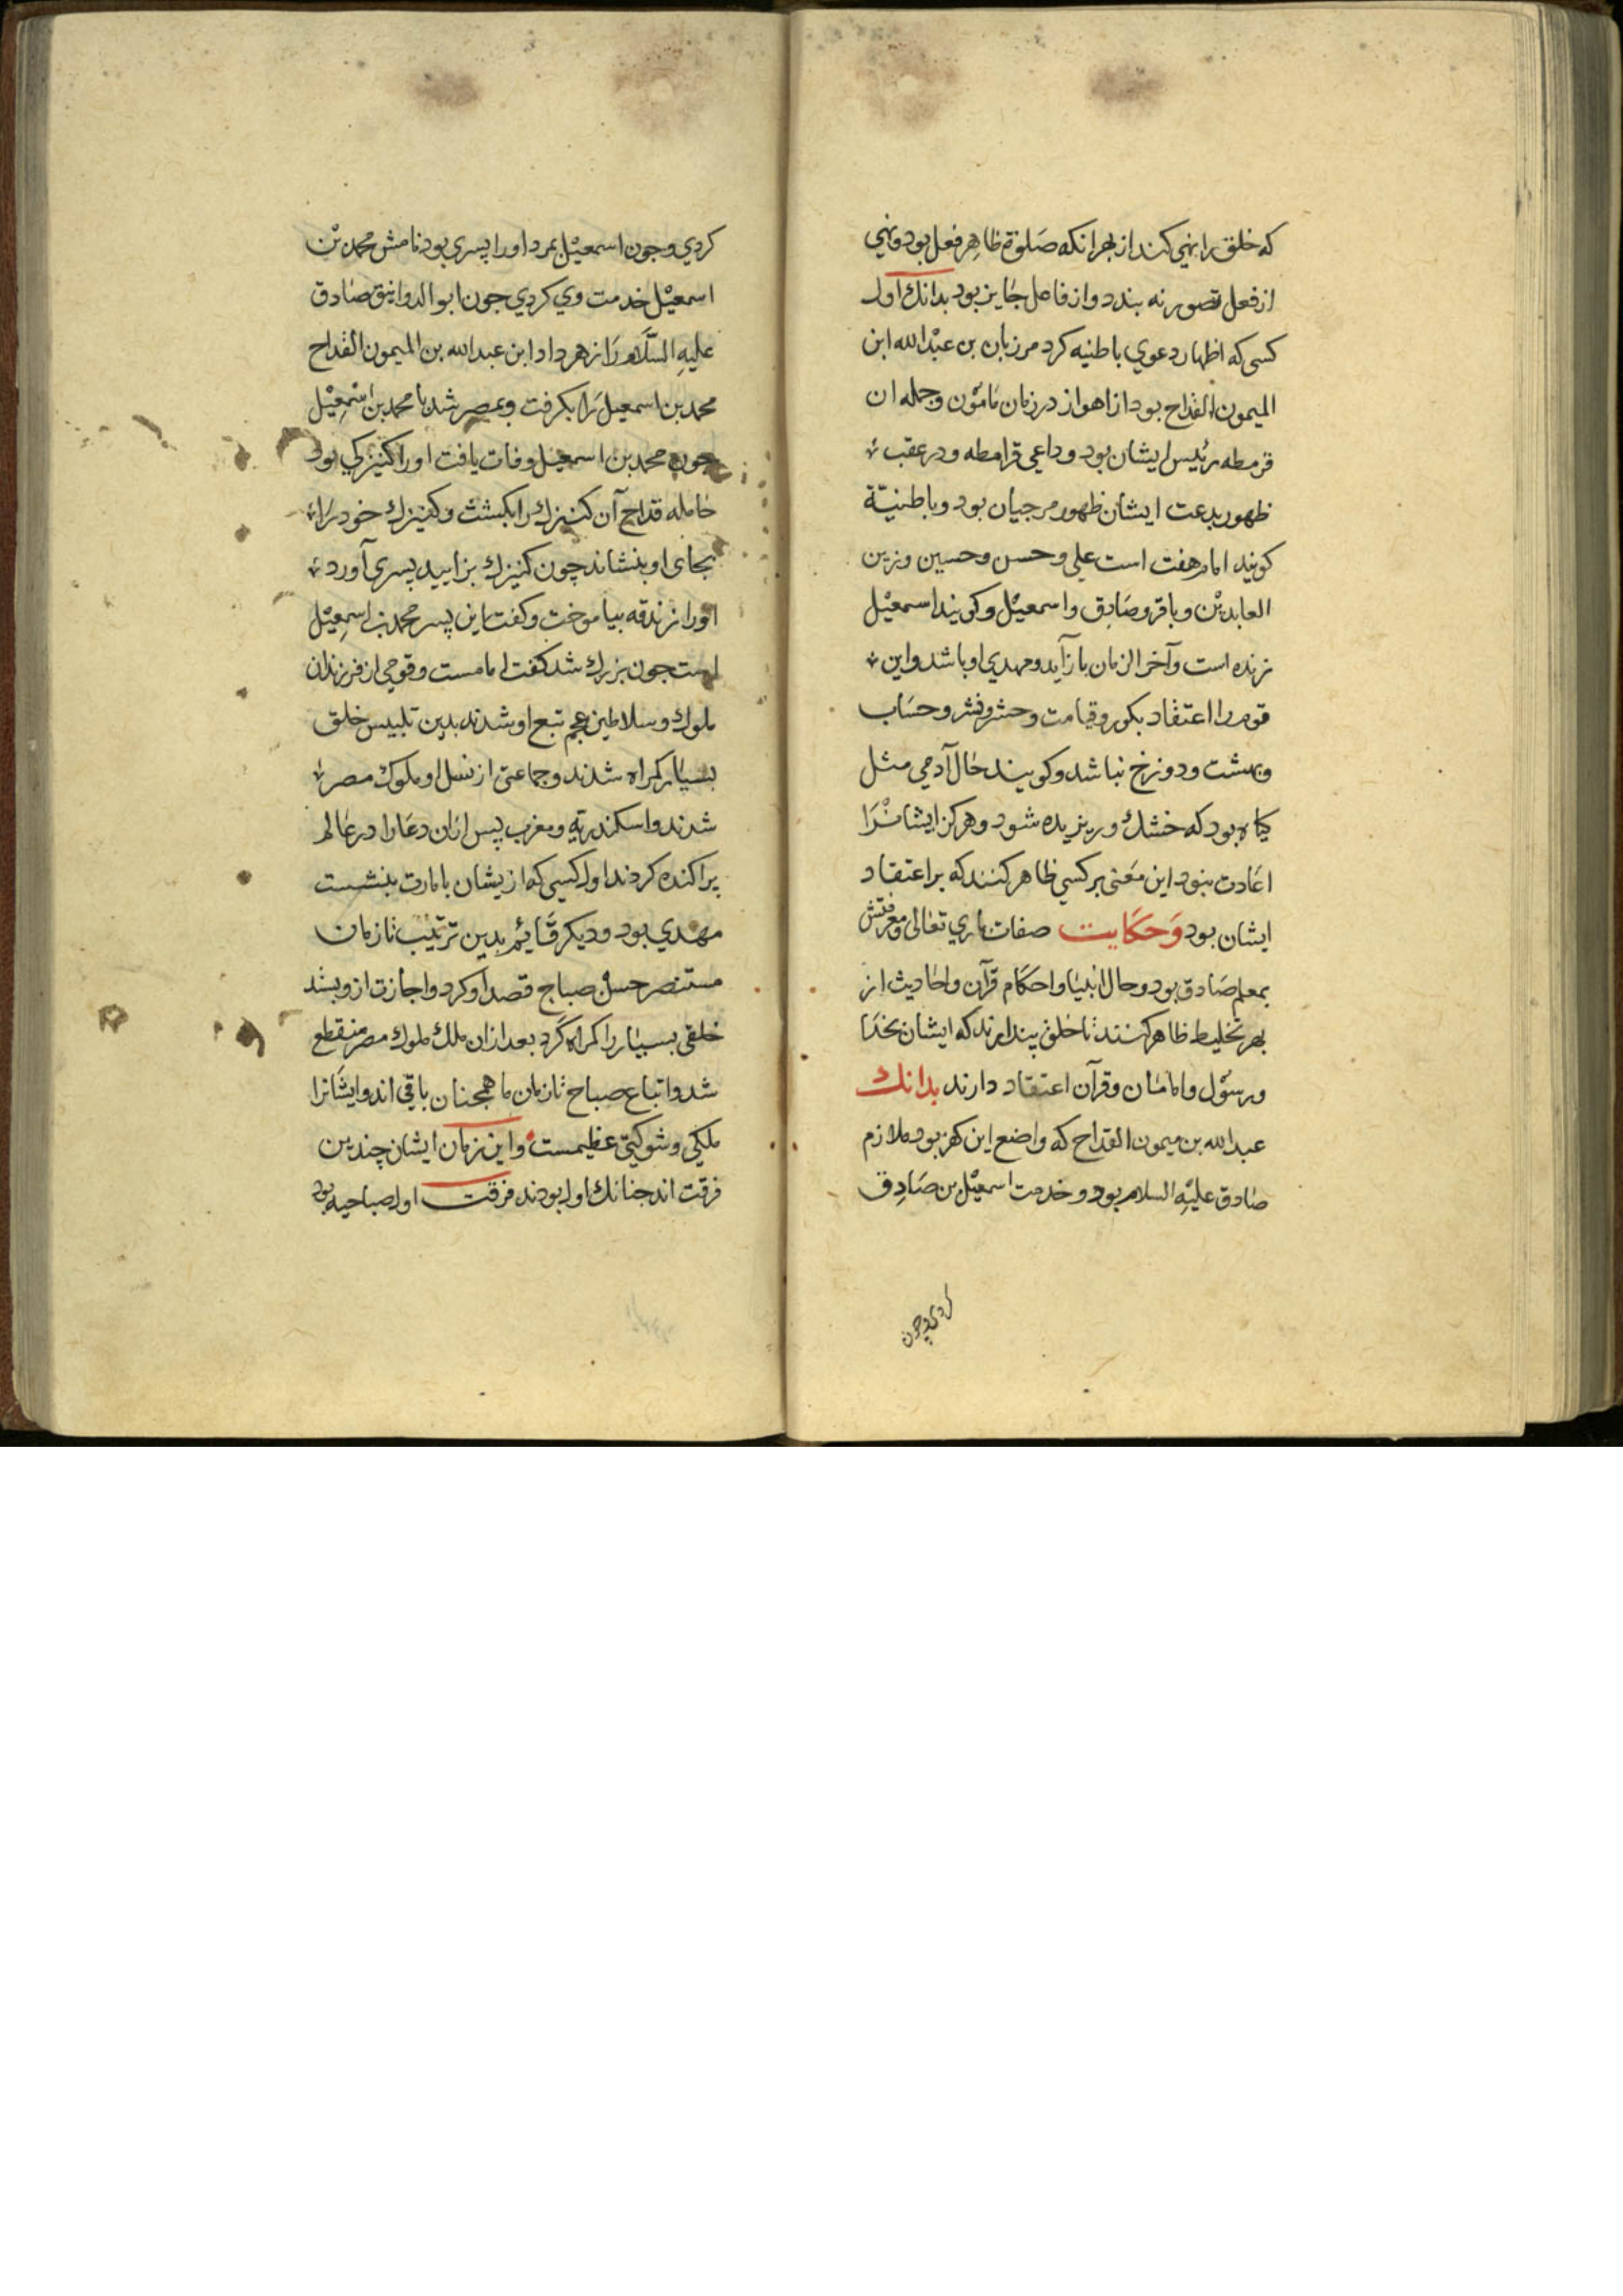 که خلق را نهی کند از بهر انکه صَلوة ظاهِر فعل بود و نهی
از فعل تصور نه بندد و از فاعل جایز بود بدانك اول
کسی که اظهار دعوي باطنیه کرد مرزبان بن عبْدالله ابن
المیمون القداح بود از اهواز در زمان مامُون و جمله ان
قرمطه رئیس ایشان بود و داعی قرامطه و در عقب
ظهور بدعت ایشان ظهور مرجیان بود و باطنیّة
کویند امام هفت است علی و حسن و حسین و زین
العابدیْن و باقر و صَادِق و اسمعیْل و کویند اسمعیْل
زنده است و آخر الزمان باز آید و مهدي او باشد و این
قوم را اعتقاد بکور و قیامت و حشر و نشر و حسَاب
و بهشت و دوزخ نباشد و کویند حال آدمی مثل
کیاه بود که خشك و ریزیده شود و هرکز ایشانْرَا
اعَادت نبود این مَعنی بر کسی ظاهر کنند که بر اعتقاد
ایشان بود وَحکایت صفات باري تعالی و معرفتش
بمعلم صَادق بود و حال انبیا و احکام قرآن و احادیث از
بهر تخلیط ظاهر کنند تا خلق پندارند که ایشان بخدَا
و رسُول و امامان و قرآن اعتقاد دارند بدانك
عبدالله بن میمون القداح که واضع این کفر بود ملازم
صَادق علیْهِ السلام بود و خدمت اسمعیْل بن صَادِق
کردی و چون
کردي و جون اسمعیْل بمرد او را پسري بود نامش محمد بْن
اسمعیْل خدمت وي کردي جون ابو الدوانیق صَادق
علیهِ السَّلام رَا زهر داد ابن عبدالله بن المیمون القداح
محمد بن اسمعیل رَا بکرفت و بمصر شد با محمد بن اسْمعِیْل
جون محمد بن اسمعیل وفات یافت او را کنیزکي بود
حَامله قداح آن کنیزك را بکشت و کنیزك خود رَا
بجای او بنشاند چون کنیزك بزایید پسري آورد
او را زندقه بیاموخت و کفت این پسر محمد بن اسمِعیْل
است جون بزرك شد کفت امامست و قومي از فرزندان
ملوك و سلاطین عجم تبع او شدند بدین تلبیس خلق
بسیَار کمراه شدند و جماعتی از نسل او ملوك مصر
شدند و اسکندریهِ و مغرب پس ازان دعَاة را در عَالم
پراکنده کردند اول کسي که ازیشان بامارت بنشست
مهدي بود و دیکر قَایُم بدین ترتیب تا زمان
مستنصر حسن صباح قصد او کرد و اجازت ازو بستد
خلقی بسیَار را کمراه کَرد بعد ازان ملك ملوك مصر منقطع
شد و اتباع صباح تا زمان ما همجنان باقي اند و ایشَانرا
ملکي و شوکتي عظیمست و این زمان ایشان چندین
فرقت اند جنانك اول بودند فرقت اول صباحیه بود